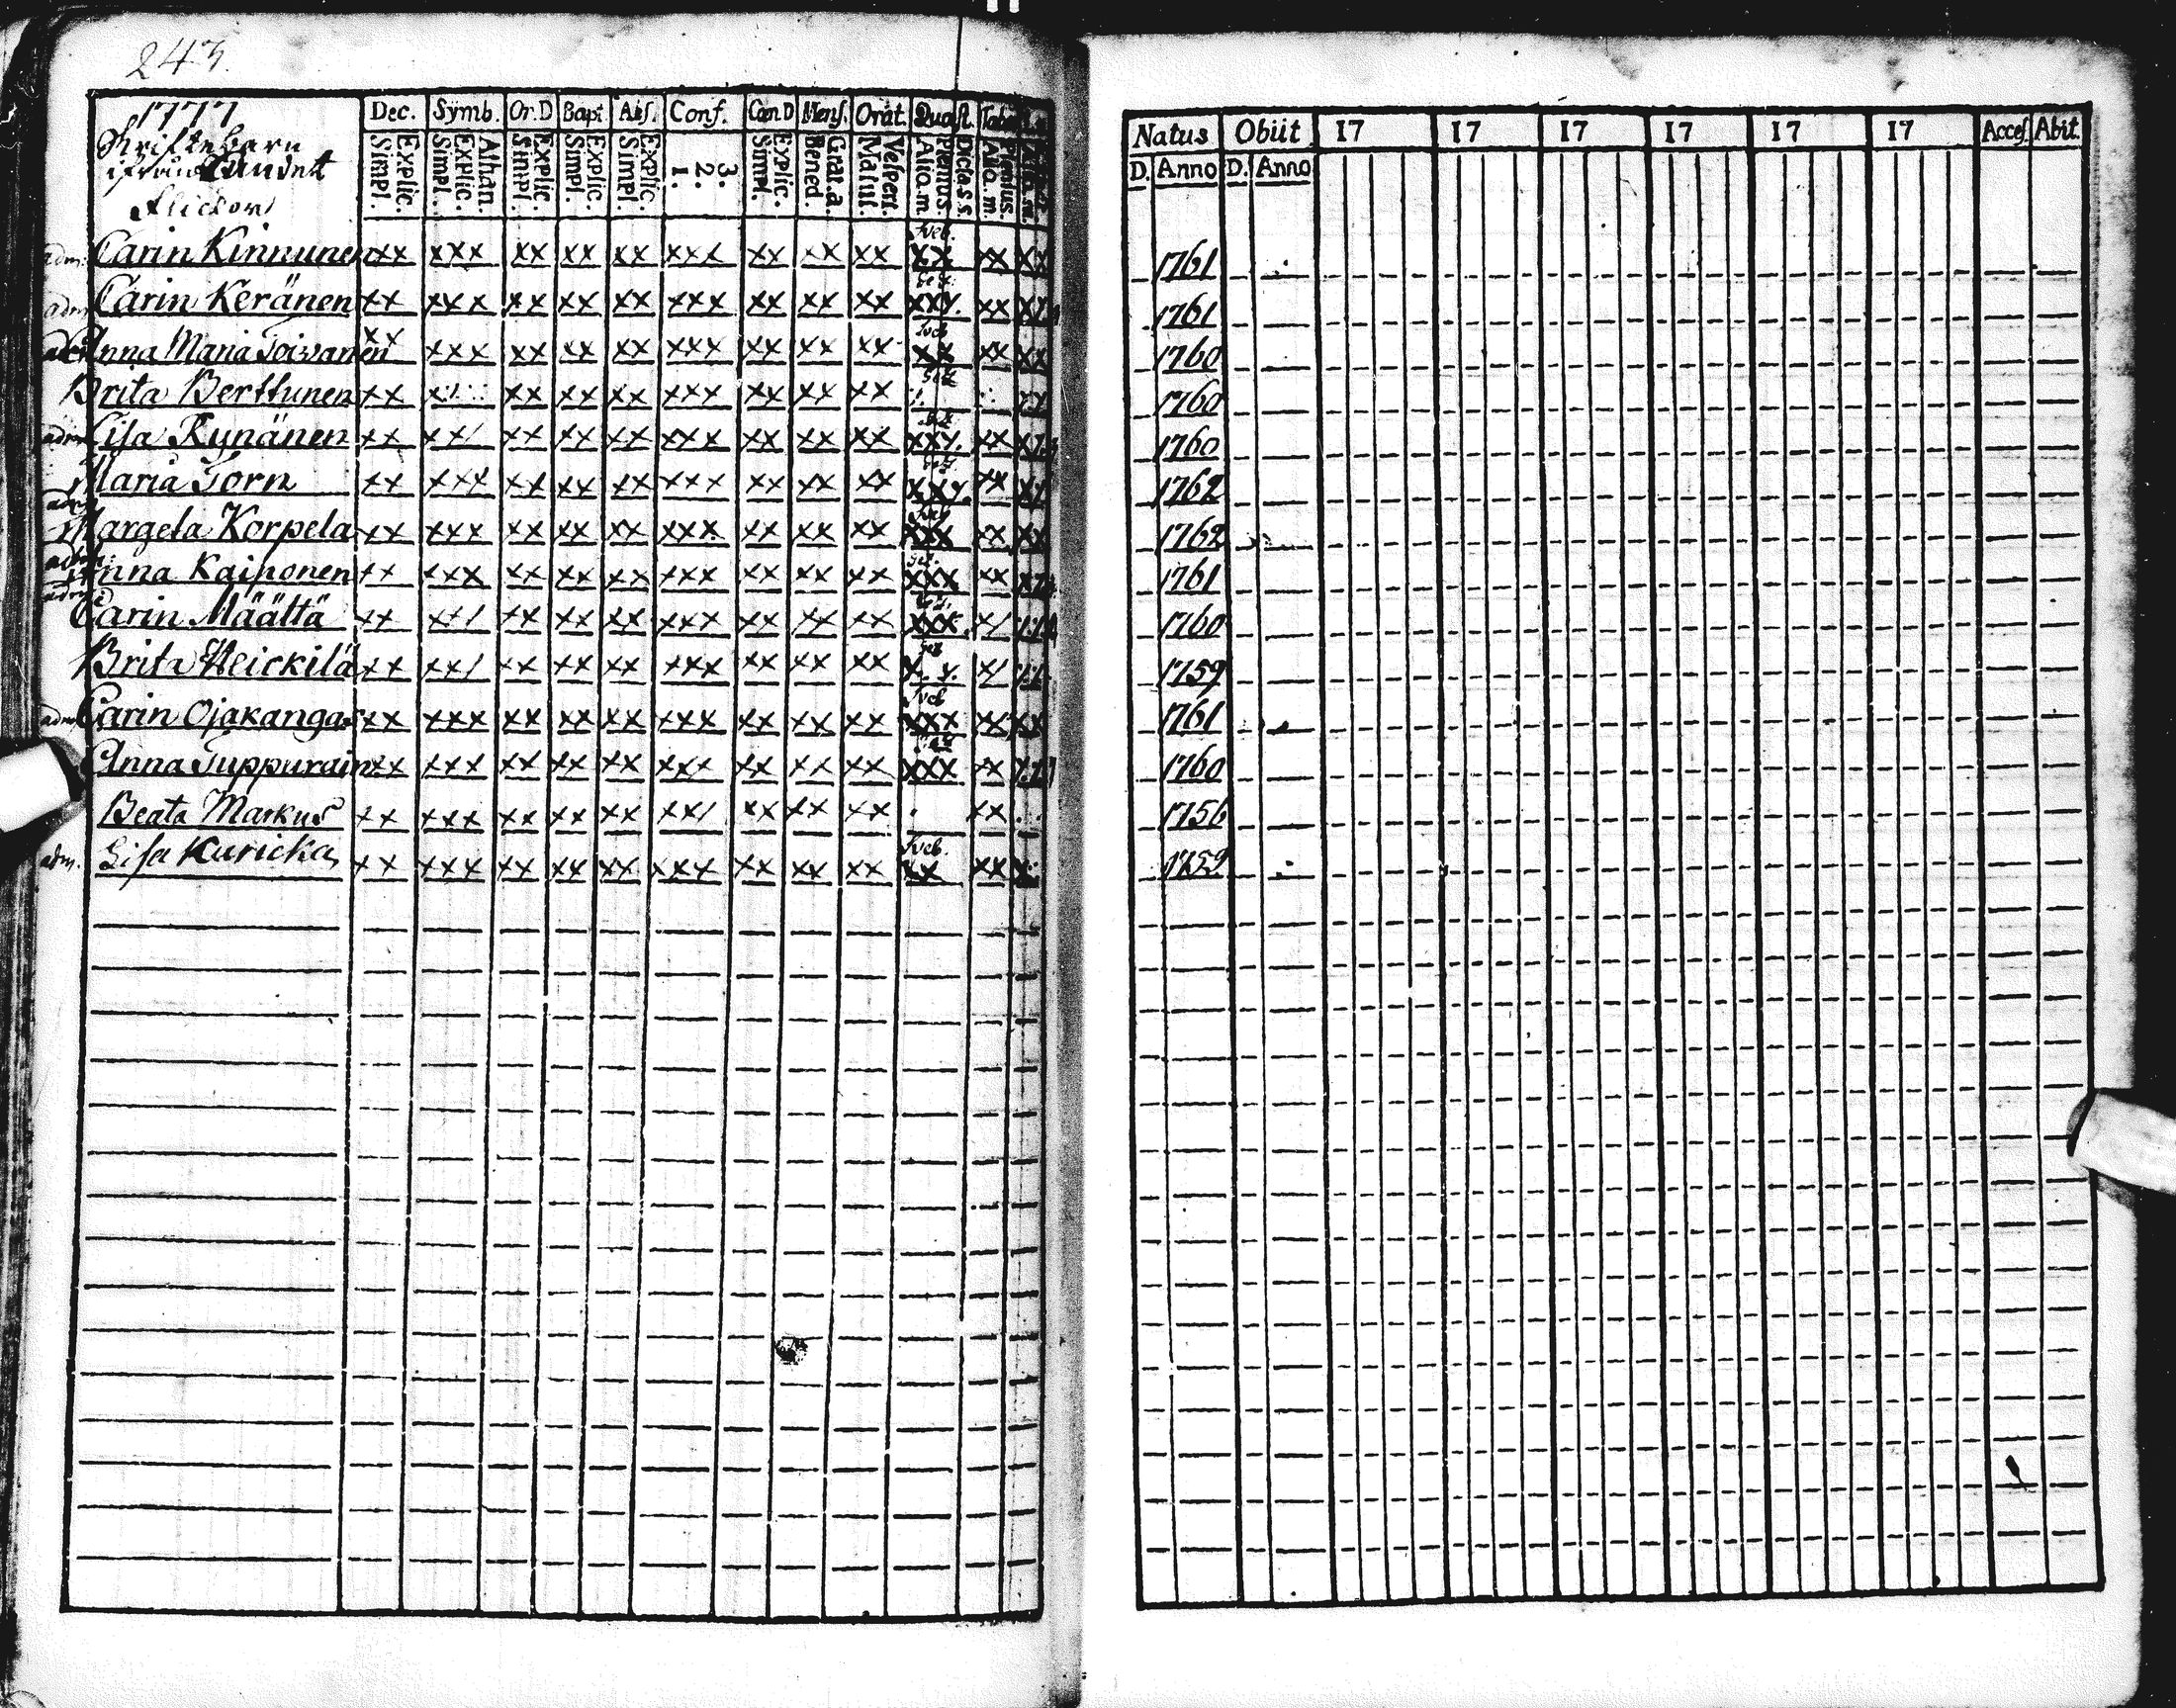 243.
1777
Skriftebarn
ifrån Landet
Flickor
Dec. Symb. Or. D Bapt. Abs. Conf. Cœn D Mens. Orat. Quæst. Tabu
Simpl. Explic. Simpl. Explic. Athan. Simpl. Explic. Simpl. Explic. Simpl. Explic. 1. 2. 3. Simpl. Explic. Bened. Grat. a. Matut. Vespert. Aliq. m. Plenius. Dicta s. s. Aliq. m. Plenius.
Natus Obiit 17 17 17 17 17 17 Acces. Abit.
D. Anno D. Anno
adm. Carin Kinnunen xx xxx xx xx xx xxx xx xx xx Sveb. xx xx xx 1761
adm Carin Keränen xx xxx xx xx xx xxx xx xx xx xx 1761
Anna Maria Toivanen xx xxx xx xx xx xxx xx xx xx Sveb xx xx xx 1760
Brita Berttunen xx xx xx xx xxx xx xx xx 1760
adm Lisa Kynänen xx xx/ xx xx xx xxx xx xx xx xx 1760
Maria Torn xx xxx xx xx xx xxx xx xx xx xx 1762
adm Margeta Korpela xx xxx xx xx xx xxx xx xx xx xxx xx xx 1762
Anna Kainonen xx xxx xx xx xx xxx xx xx xx xxx xx 1761
Carin Määttä xx xx/ xx xx xx xxx xx xx xx xxx x/ 1760
Brita Heickilä xx xx/ xx xx xx xxx xx xx xx x/ 1759
adm Carin Ojakangas xx xxx xx xx xx xxx xx xx xx Sveb xxx xx xx 1761
Anna Tuppurain xx xxx xx xx xx xxx xx xx xx xxx xx 1760
Beata Markus xx xxx xx xx xx xx/ xx xx xx xx 1756
adm. Lisa Kuricka xx xxx xx xx xx xxx xx xx xx Sveb. xx xx 1759